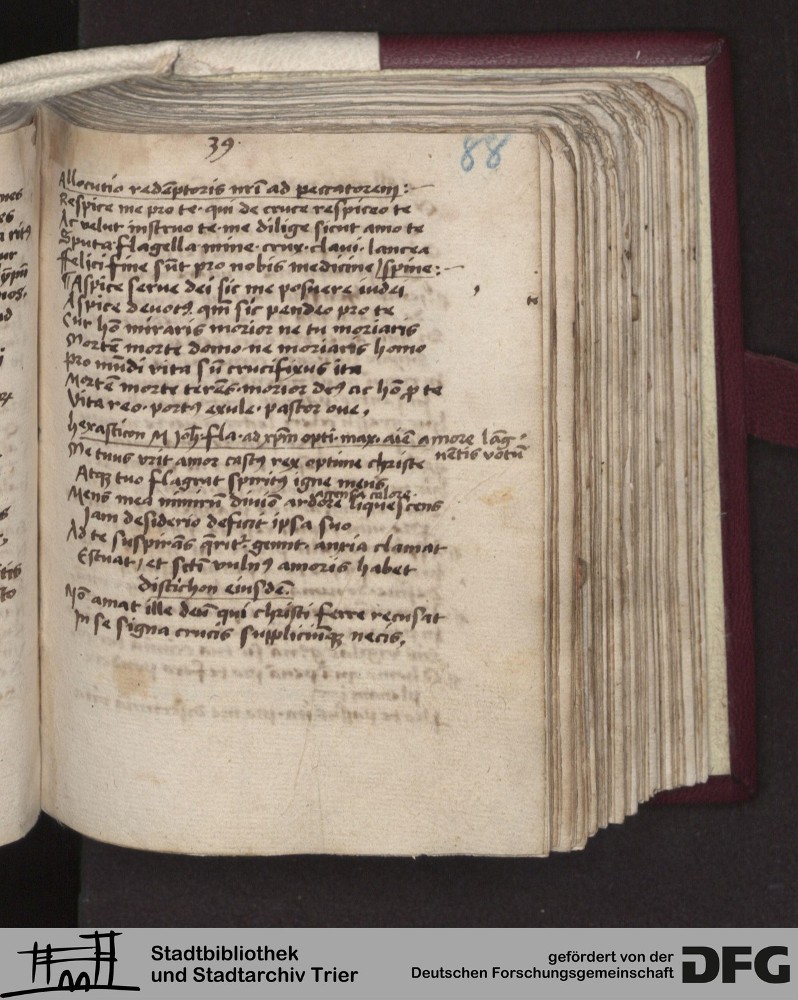 39.
88
Allocutio redēptoris nrī ad peccatorem:
Respice me pro te· qui de cruce respiceo te
Ac velut instruo te· me dilige sicut amo te
Sputa· flagella mine· crux· claui· lancea
Felici fine sūt pro nobis medicine / spine:
Aspice serue dei sic me posuere iudei
Aspice deuotꝰ qm̄ sic pendeo pro te
Cur hō miraris morior ne tu moriaris
Mortē morte domo· ne moriaris homo
Pro mūdi vita sū crucifixus ita
Mortē morte terēs· morior deꝰ ac hō ꝓ te
Vita reo· portꝰ exule· pastor oue.
hexasticon M Joh̄· fla· ad xp̄m opti· max· aīe amore lāg·
netis votū
Me tuus vrit amor castꝰ rex optime christe
Atqꝫ tuo flagrat spiritꝰ igne meus,
Mens mea nimirū diuīo ardore liquescens
calore·
Jam desiderio deficit ipsa suo
Ad te suspirās q̄rit· gemit· anxia clamat
Estuat / et sctm̄ vulnꝰ amoris habet
Distichon eiusdē·
Nō amat ille deū qui christi ferre recusat
In se signa crucis suppliciūqꝫ necis.
Stadtbibliothek
und Stadtarchiv Trier
gefördert von der
Deutschen Forschungsgemeinschaft
DFG